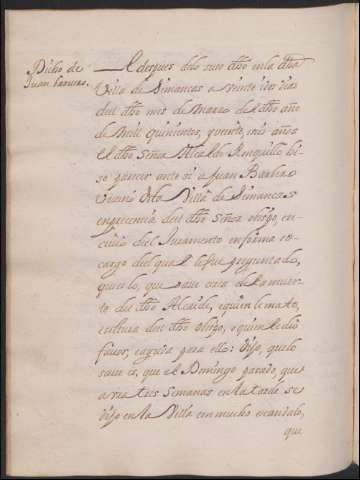 Dicho de
Juan
E despues delo suso dho en la dha
Villa de Simancas a veinte i dos dias
del dho mes de Marzo del dho año
de Mill quinientos, y veinte, i seis años
el dho Señor Alcalde Ronquillo hi-
zo parecer ante si a Juan
Vezino dela Villa de Simancas
en presencia del dho Señor obispo, en-
cuio del Juramento en forma so
cargo del qual le fue preguntado,
que es lo, que save cerca de la muer-
to del dho Alcaide, e quien le mato,
e soltura del dho obispo, e quien le dio
favor, e aiuda para ello: dijo, que lo
save es, que el Domingo pasado, que
avra tres Semanas en la tarde se
dijo en la Villa con mucho escandalo,
que